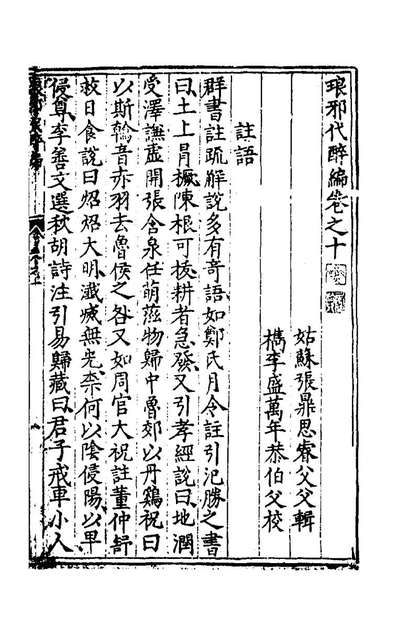 琅邪代醉編卷之十
姑蘇張鼎思睿父父輯
檇李盛萬年恭伯父校
註語
群書註疏解說多有奇語如鄭氏月令註引氾勝之書
曰土上冐橛陳根可㧞耕者急發又引孝經說曰地㴞
受澤謙虛開張含泉任萌滋物歸中魯郊以丹鷄祝曰
以斯鶾音赤羽去魯侯之咎又如周官大祝註董仲舒
救日食說曰炤炤大明瀸滅無光柰何以陰侵陽以卑
侵尊李善文選秋胡詩注引易歸藏曰君子戒車小人